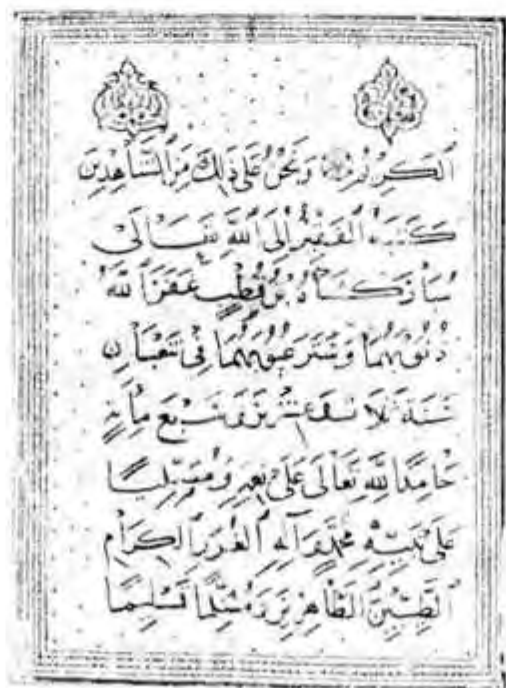 الكَرِيمُ وَنَحْنُ عَلَى ذَلِكَ مِنَ الشَّاهِدِينَ
كَتَبَهُ الفَقِيرُ إِلَى اللَّهِ تَعَالَى
مُبَارَكشَاهُ بْنُ قُطْبٍ غَفَرَ اللَّهُ
ذُنُوبَهُمَا وَسَتَرَ عُيُوبَهُمَا فِي شَعْبَانِ
سَنَةَ ثَلَاثٍ وَعِشْرِينَ وَسَبْعَ مِائَةٍ
حَامِدًا لِلَّهِ تَعَالَى عَلَى نِعَمِهِ وَمُصَلِّيًا
عَلَى نَبِيِّهِ مُحَمَّدٍ وَآلِهِ الغُرَرِ الكِرَامِ
الطَّيِّبِينَ الطَّاهِرِينَ وَمُسَلِّمًا تَسْلِيمًا